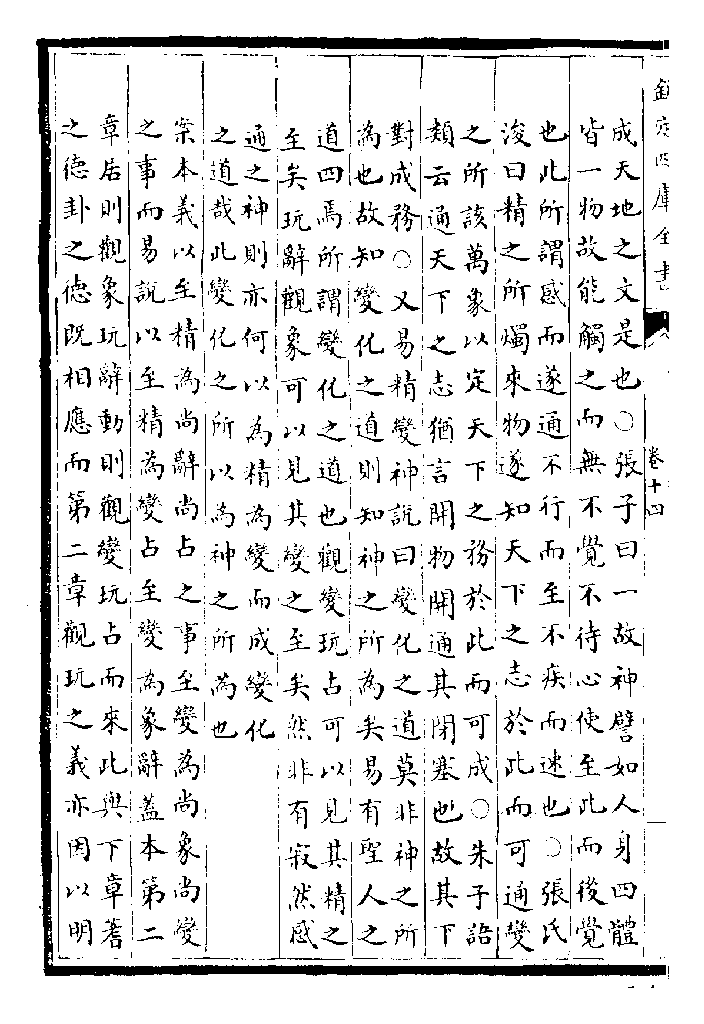 欽定四庫全書
卷十四
成天地之文是也○張子曰一故神譬如人身四體
皆一物故能觸之而無不覺不待心使至此而後覺
也此所謂感而遂通不行而至不疾而速也○張氏
浚曰精之所燭來物遂知天下之志於此而可通變
之所該萬象以定天下之務於此而可成○朱子語
類云通天下之志猶言開物開通其閉塞也故其下
對成務○又易精變神說曰變化之道莫非神之所
為也故知變化之道則知神之所為矣易有聖人之
道四焉所謂變化之道也觀變玩占可以見其精之
至矣玩辭觀象可以見其變之至矣然非有寂然感
通之神則亦何以為精為變而成變化
之道哉此變化之所以為神之所為也
案本義以至精為尚辭尚占之事至變為尚象尚變
之事而易說以至精為變占至變為象辭蓋本第二
章居則觀象玩辭動則觀變玩占而來此與下章蓍
之德卦之德既相應而第二章觀玩之義亦因以明